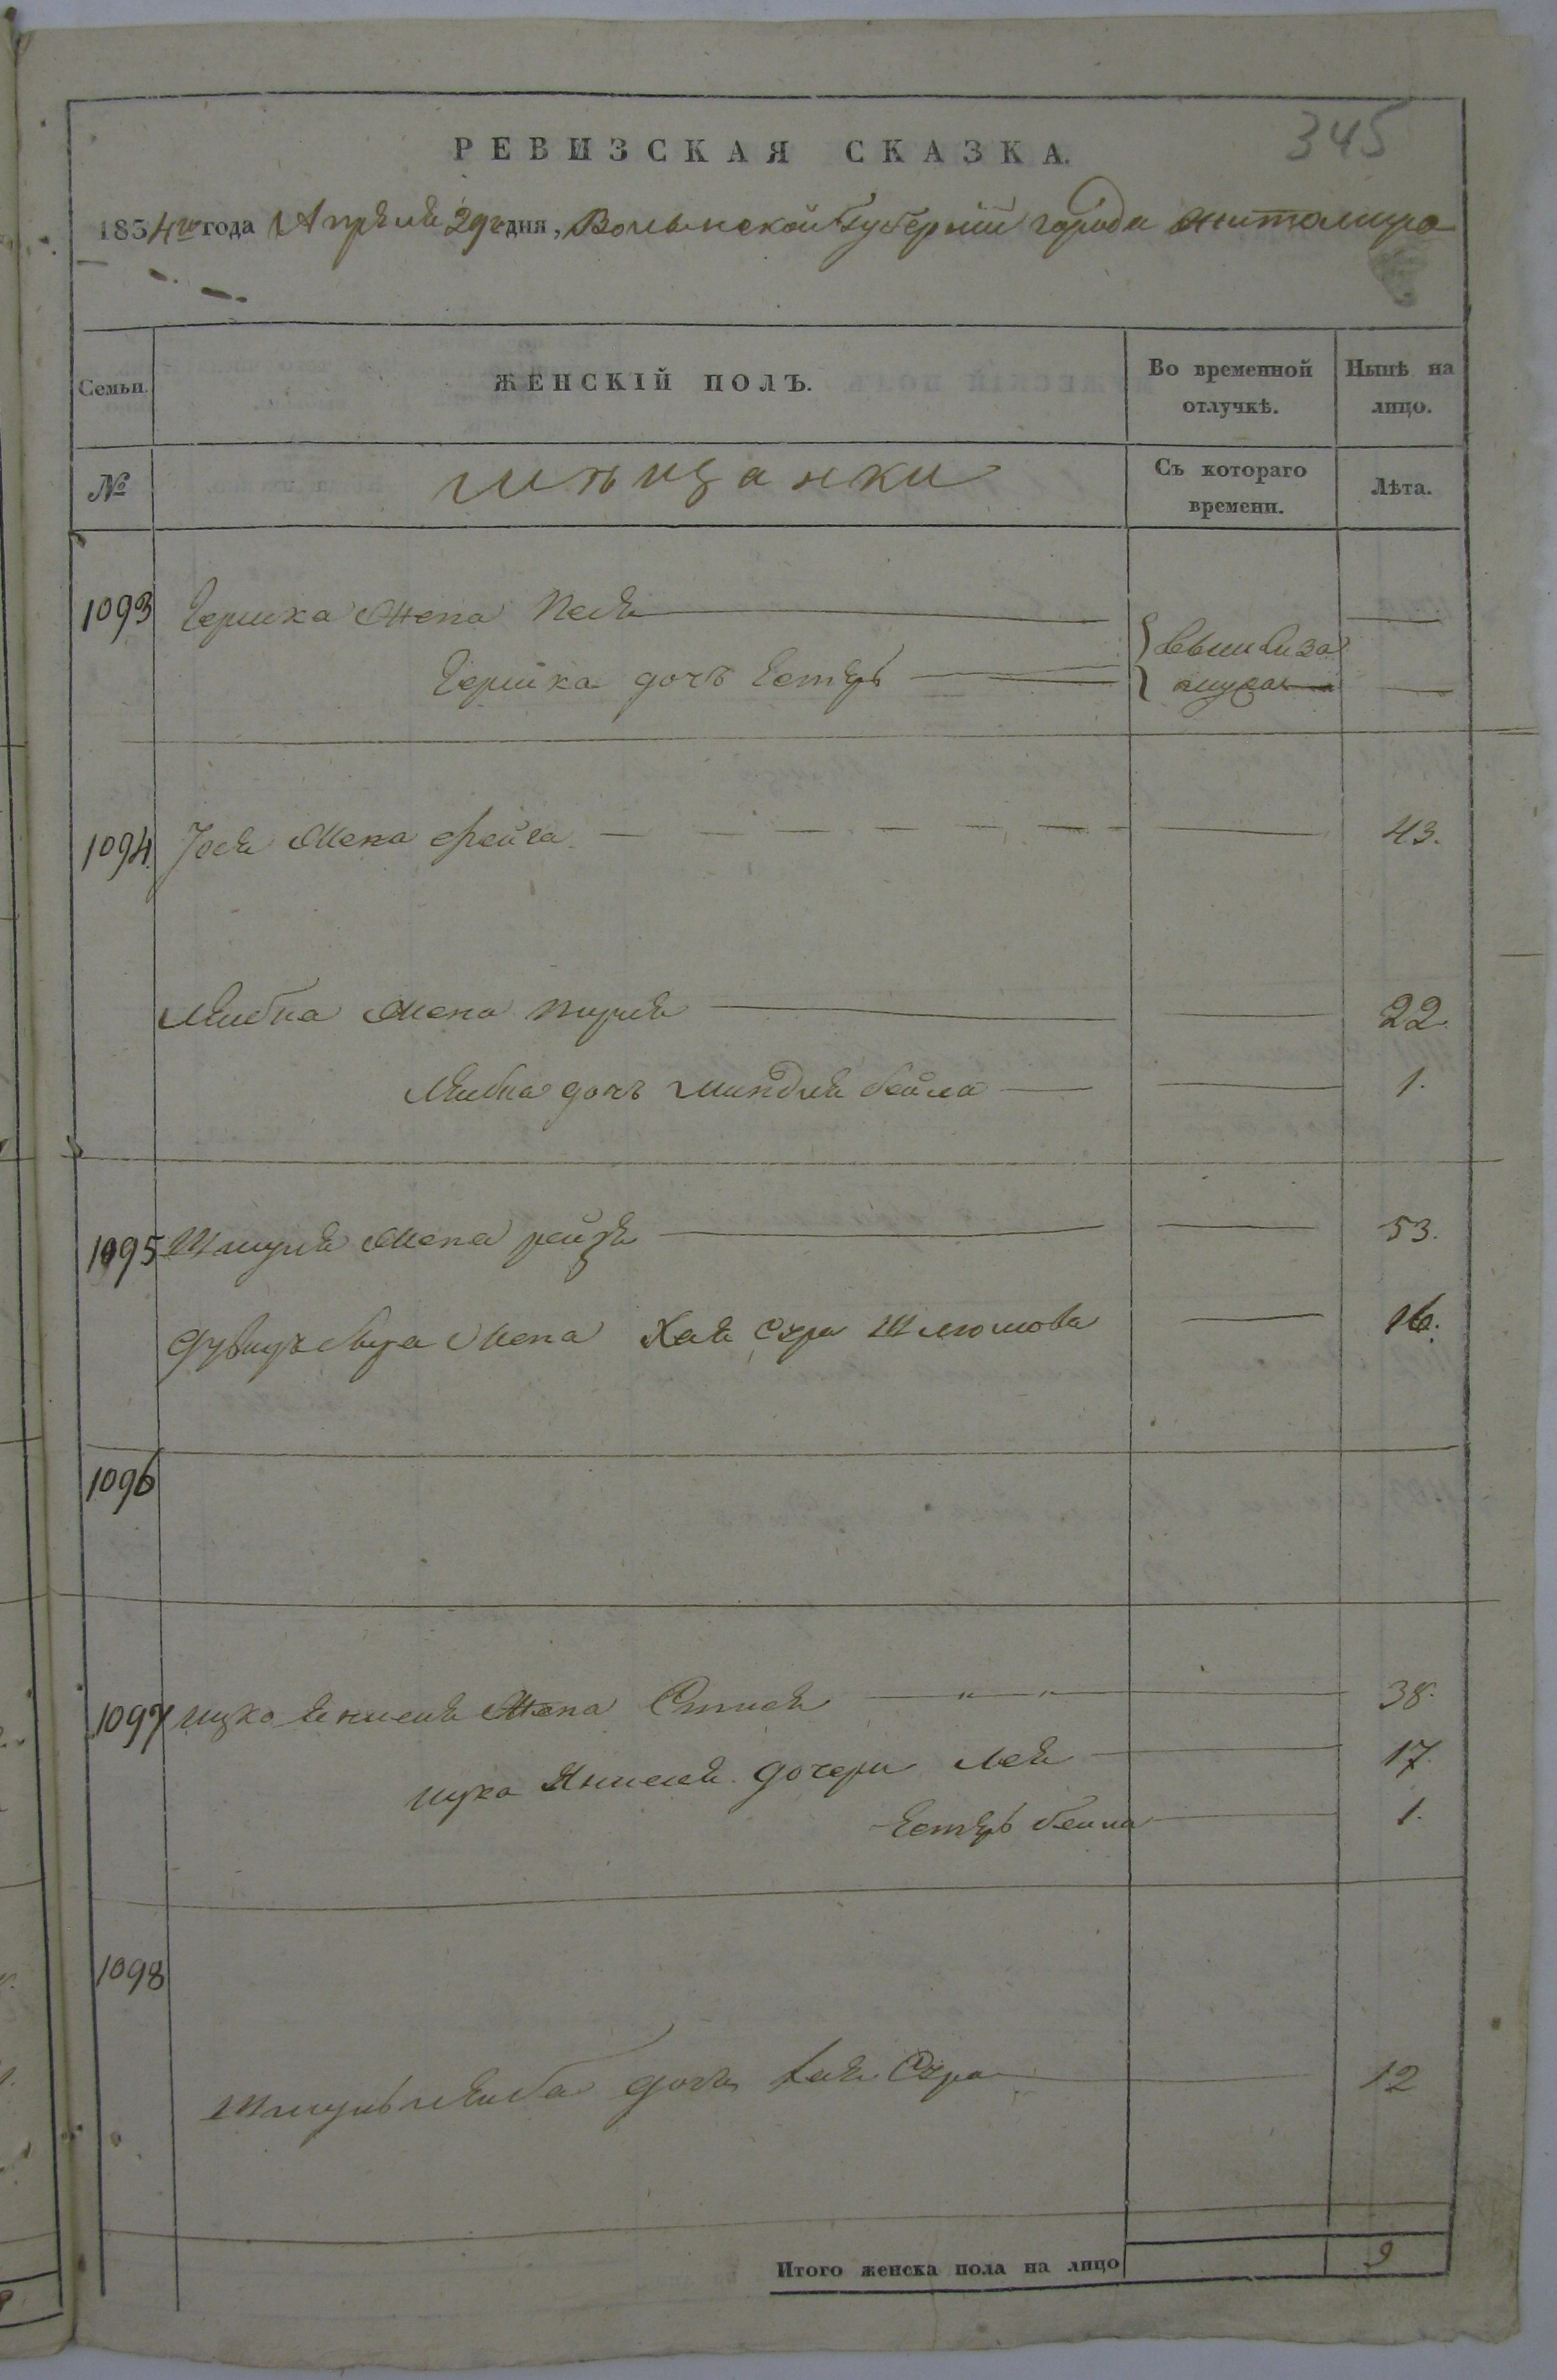 345
РЕВИЗСКАЯ СКАЗКА.
1834го года Апреля 29го дня, Волынской Губернии города Житомира
Семьи. ЖЕНСКІЙ ПОЛЪ. Во временной отлучкѣ. Нынѣ на лицо.
№ мѣщанки Съ котораго времени. Лѣта.
1093 Гершка Жена Песя
вышли за
Гершка дочь Естеръ
мужа
1094 Жена Фейга 43.
Лейбка Жена 22.
Лейбка дочь Миндля Бейла 1.
1095 Шмуля Жена Рейзя 53.
Жена Хая Сура Шлюмова 16.
1096
1097 Ицко Жена 38.
Ицка дочери Лея 17.
Естеръ Бейла 1.
1098
Шмуль Лейба дочь Хая Сура 12
Итого женска пола на лицо 9